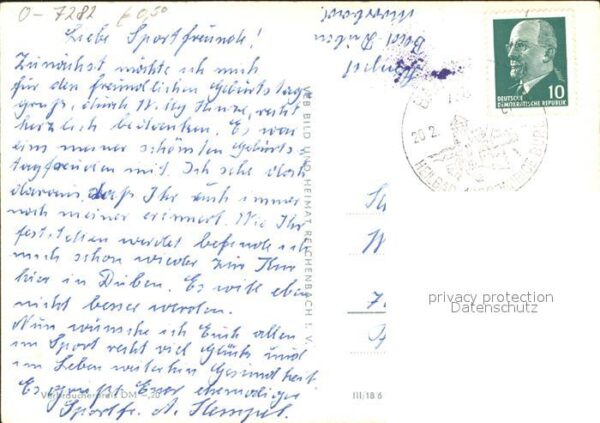 O-7282 €0,50
Liebe Sportfreunde!
Zunächst möchte ich mich
für den freundlichen Geburtstags
gruß, durch Willy Hinze, recht
herzlich bedanken. Es war
eine meiner schönsten Geburts
tagfreuden mit. Ich sehe doch
daraus, daß Ihr euch immer
noch meiner erinnert. Wie Ihr
feststellen werdet befinde ich
mich schon wieder zur Kur
hier in Düben. Es will eben
nicht besser werden.
Nun wünsche ich Euch allen
im Sport recht viel Glück und
im Leben weiterhin Gesundheit.
Es grüßt Euer ehemaliger
Sportfr. A. Hempel.
Verbraucherpreis DM -,20
VEB BILD UND HEIMAT REICHENBACH I. V.
III/18 6
Hempel
Bad Düben
10
DEUTSCHE
DEMOKRATISCHE REPUBLIK
20.2.
privacy protection
Datenschutz